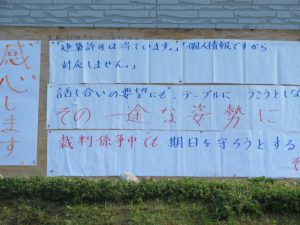 感心します
「建築許可は当ています。」「個人情報ですから
対応しません。」
話し合いの要望にも テーブルに つこうとしな
その一途な姿勢に
裁判係争中でも 期日を守ろうとする
そ